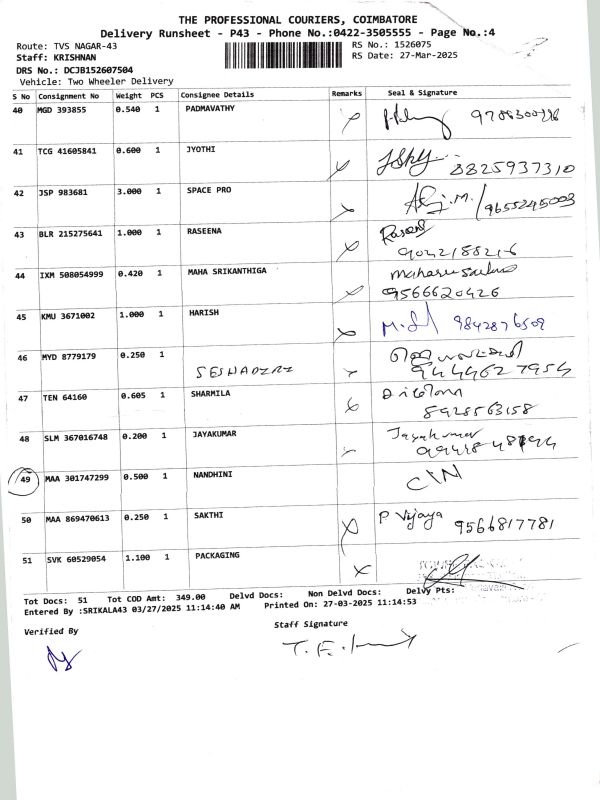 THE PROFESSIONAL COURIERS, COIMBATORE
Delivery Runsheet - P43 - Phone No.:0422-3505555 - Page No.:4
Route: TVS NAGAR-43 RS No.: 1526075
Staff: KRISHNAN RS Date: 27-Mar-2025
DRS No.: DCJB152607504
Vehicle: Two Wheeler Delivery
S No Consignment No Weight PCS Consignee Details Remarks Seal & Signature
40 MGD 393855 0.540 1 PADMAVATHY
41 TCG 41605841 0.600 1 JYOTHI 8825937310
42 JSP 983681 3.000 1 SPACE PRO 9655245003
43 BLR 215275641 1.000 1 RASEENA
9042188216
44 IXM 508054999 0.420 1 MAHA SRIKANTHIGA
9566620426
45 KMU 3671002 1.000 1 HARISH 9842876509
46 MYD 8779179 0.250 1
9444627954
47 TEN 64160 0.605 1 SHARMILA
8928563158
48 SLM 367016748 0.200 1 JAYAKUMAR Jayakumar
49 MAA 301747299 0.500 1 NANDHINI
50 MAA 869470613 0.250 1 SAKTHI P Vijaya 9566817781
51 SVK 60529054 1.100 1 PACKAGING
Tot Docs: 51 Tot COD Amt: 349.00 Delvd Docs: Non Delvd Docs: Delvy Pts:
Entered By :SRIKALA43 03/27/2025 11:14:40 AM Printed On: 27-03-2025 11:14:53
Verified By Staff Signature